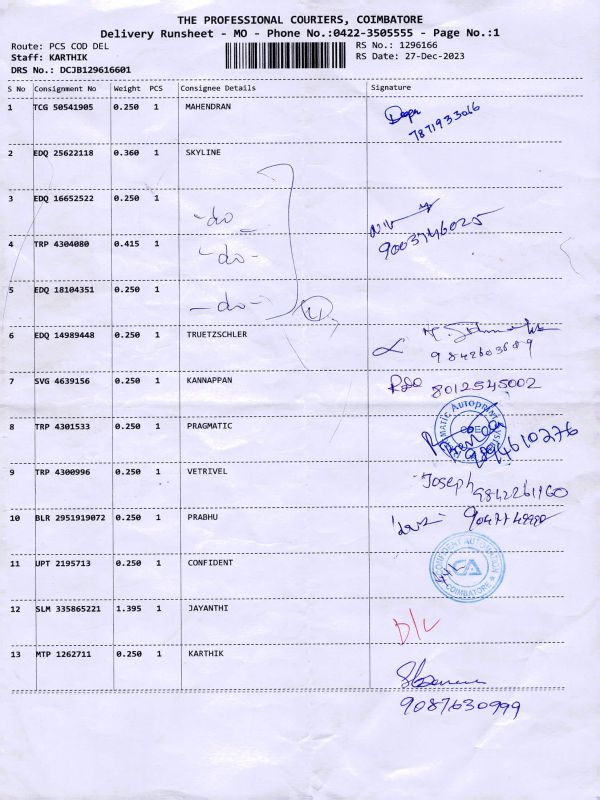 THE PROFESSIONAL COURIERS, COIMBATORE
Delivery Runsheet - MO - Phone No.:0422-3505555 - Page No.:1
Route: PCS COD DEL
RS No.: 1296166
Staff: KARTHIK
RS Date: 27-Dec-2023
DRS No.: DCJB129616601
S No Consignment No Weight PCS Consignee Details Signature
1 TCG 50541905 0.250 1 MAHENDRAN
7871933066
2 EDQ 25622118 0.360 1 SKYLINE
3 EDQ 16652522 0.250 1 -do-
9003746025
4 TRP 4304080 0.415 1 -do-
5 EDQ 18104351 0.250 1 -do-
6 EDQ 14989448 0.250 1 TRUETZSCHLER
9842603689
7 SVG 4639156 0.250 1 KANNAPPAN
8012545002
8 TRP 4301533 0.250 1 PRAGMATIC
9894610276
9 TRP 4300996 0.250 1 VETRIVEL
Joseph
9842261160
10 BLR 2951919072 0.250 1 PRABHU
11 UPT 2195713 0.250 1 CONFIDENT
CONFIDENT AUTOMATION
CA
COIMBATORE
12 SLM 335865221 1.395 1 JAYANTHI
D/L
13 MTP 1262711 0.250 1 KARTHIK
9087630999